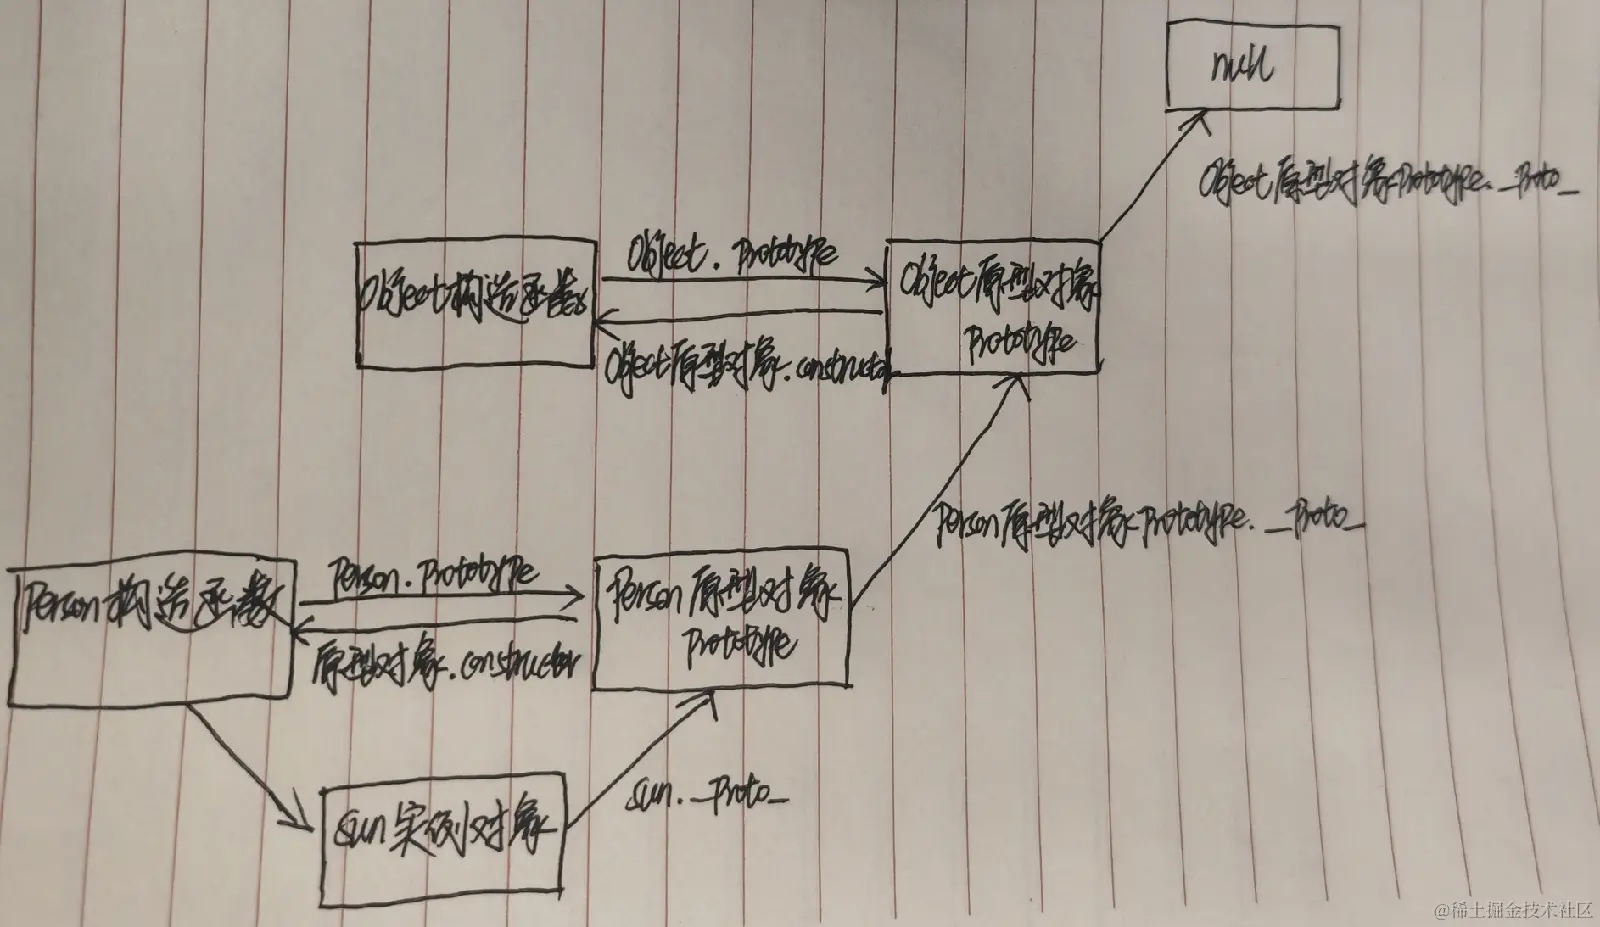 null
Object原型对象Prototype.__Proto_
Object.Prototype
Object构造函数
Object原型对象
Prototype
Object原型对象.constructor
Person原型对象Prototype.__Proto_
Person.Prototype
Person构造函数
Person原型对象
Prototype
原型对象.constructor
Sun.__Proto_
Sun实例对象
@稀土掘金技术社区